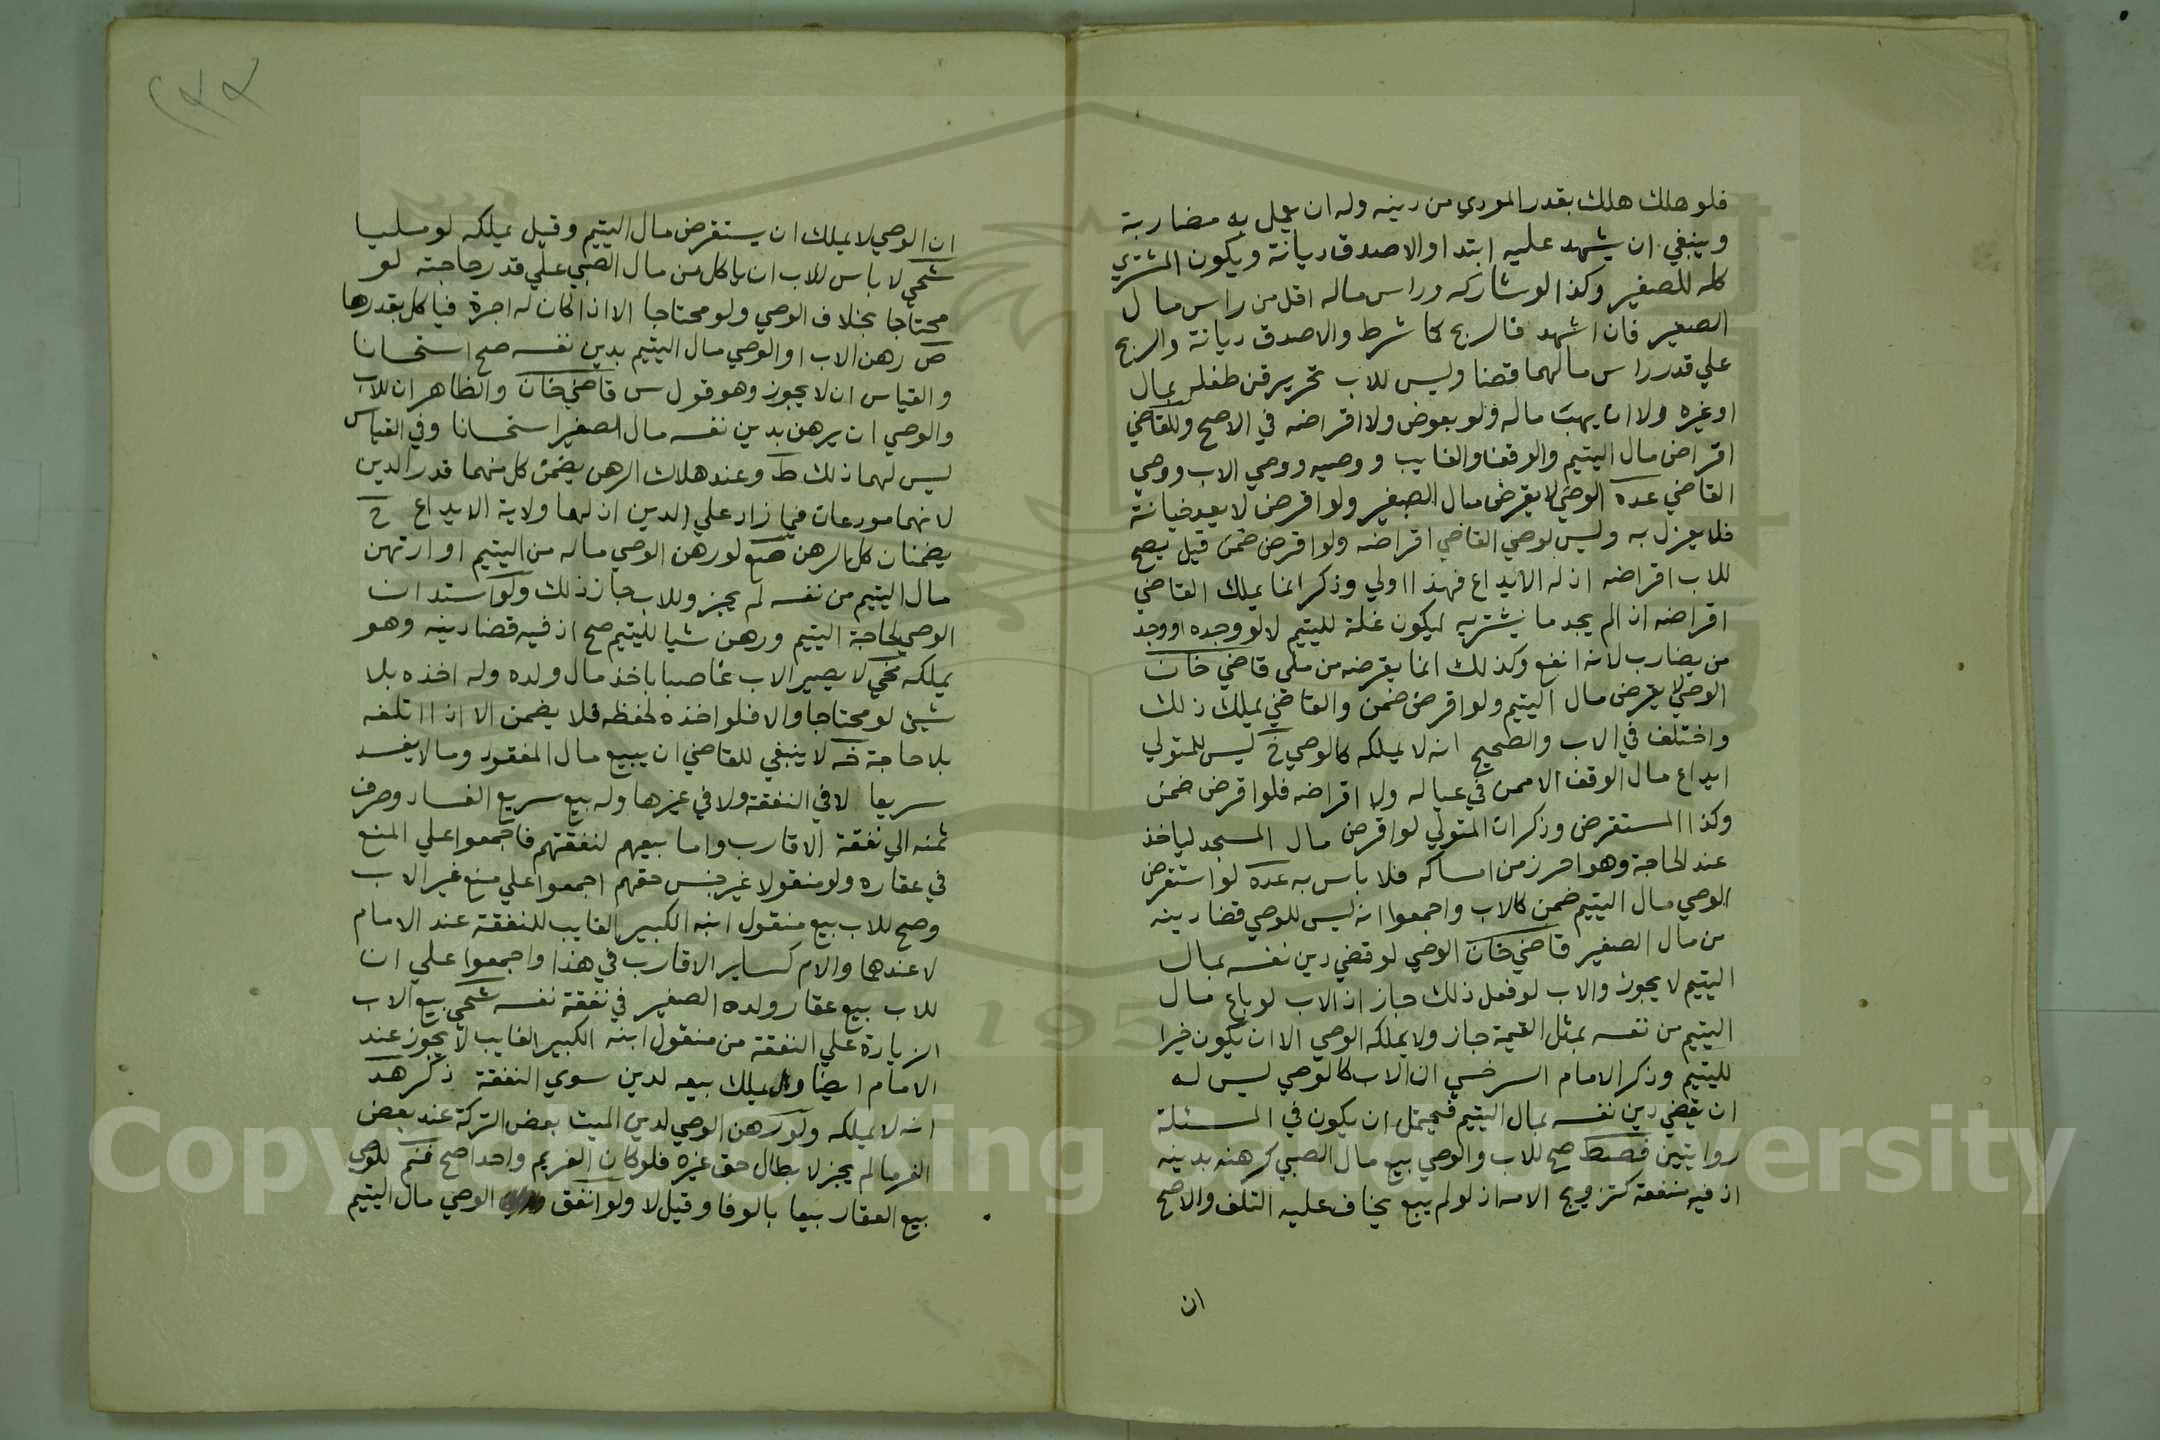 فلو هلك هلك بقدر المودي من دينه وله ان يعمل به مضاربة
وينبغي ان يشهد عليه ابتدا والا صدق ديانة ويكون المشتري
كله للصغير وكذا لو شاركه وراس ماله اقل من راس مال
الصغير فان اشهد فالربح كما شرط والا صدق ديانة والربح
علي قدر راس مالهما قضا وليس للاب تحرير قن طفله بمال
او غيره ولا ان يهب ماله ولو بعوض ولا اقراضه في الاصح وللقاضي
اقراض مال اليتيم والوقف والغايب ووصيه ووصي الاب ووصي
القاضي عده الوصي لا يقرض مال الصغير ولو اقرض لا يعد خيانة
فلا يعزل به وليس لوصي القاضي اقراضه ولو اقرض ضمن قيل يصح
للاب اقراضه اذ له الايداع فهذا اولي وذكر انما يملك القاضي
اقراضه اذا لم يجد ما يشتريه ليكون غلة لليتيم لا لو وجده او وجد
من يضارب لانه انفع وكذلك انما يقرضه من ملي قاضي خان
الوصي لا يقرض مال اليتيم ولو اقرض ضمن والقاضي يملك ذلك
واختلف في الاب والصحيح انه لا يملكه كالوصي خ ليس للمتولي
ايداع مال الوقف الا ممن في عياله ولا اقراضه فلو اقرض ضمن
وكذا المستقرض وذكر ان المتولي لو اقرض مال المسجد لياخذ
عند الحاجة وهو احرز من امساكه فلا باس به عده لو استقرض
الوصي مال اليتيم ضمن كالاب واجمعوا انه ليس للوصي قضا دينه
من مال الصغير قاضي خان الوصي لو قضي دين نفسه بمال
اليتيم لا يجوز والاب لو فعل ذلك جاز اذ الاب لو باع مال
اليتيم من نفسه بمثل القيمة جاز ولا يملكه الوصي الا ان يكون خيرا
لليتيم وذكر الامام السرخسي ان الاب كالوصي ليس له
ان يقضي دين نفسه بمال اليتيم فيحتمل ان يكون في المسئلة
روايتين فصط صح للاب والوصي بيع مال الصبي كرهنه بدينه
اذ فيه منفعة كتزويج الامه اذ لو لم يبع يخاف عليه التلف والاصح
ان
ان الوصي لا يملك ان يستقرض مال اليتيم وقيل يملكه لو مليا
شحي لا باس للاب ان ياكل من مال الصبي علي قدر حاجته لو
محتاجا بخلاف الوصي ولو محتاجا الا اذا كان له اجرة فياكل بقدرها
ص رهن الاب او الوصي مال اليتيم بدين نفسه صح استحسانا
والقياس ان لا يجوز وهو قول س قاضي خان والظاهر ان للاب
والوصي ان يرهن بدين نفسه مال الصغير استحسانا وفي القياس
ليس لهما ذلك ط وعند هلاك الرهن يضمن كل منهما قدر الدين
لانهما مودعان فيما زاد علي الدين اذ لهما ولاية الايداع خ
يضمنان كل الرهن صع لو رهن الوصي ماله من اليتيم او ارتهن
مال اليتيم من نفسه لم يجز وللاب جاز ذلك ولو استدان
الوصي لحاجة اليتيم ورهن شيا لليتيم صح اذ فيه قضا دينه وهو
يملكه نحي لا يصير الاب غاصبا باخذ مال ولده وله اخذه بلا
شيئ لو محتاجا والا فلو اخذه لحفظه فلا يضمن الا اذا اتلفه
بلا حاجة خه لا ينبغي للقاضي ان يبيع مال المفقود وما لا يفسد
سريعا لا في النفقة ولا في غيرها وله بيع سريع الفساد وصرف
ثمنه الي نفقة الاقارب واما بيعهم لنفقتهم فاجمعوا علي المنع
في عقاره ولو منقولا غير جنس حقهم اجمعوا علي منع غير الاب
وصح للاب بيع منقول ابنه الكبير الغايب للنفقة عند الامام
لا عندهما والام كساير الاقارب في هذا واجمعوا علي ان
للاب بيع عقار ولده الصغير في نفقة نفسه شحي بيع الاب
الزيادة علي النفقة من منقول ابنه الكبير الغايب لا يجوز عند
الامام ايضا ولا يملك بيعه لدين سوي النفقة ذكر هد
انه لا يملكه ولو رهن الوصي لدين الميت بعض التركة عند بعض
الغرما لم يجز لابطال حق غيره فلو كان الغريم واحدا صح للوصي
بيع العقار بيعا بالوفا وقيل لا ولو انفق الوصي مال اليتيم
Copyright © King Saud University
1957